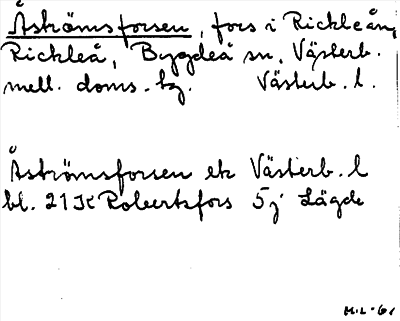 Åströmsforsen, fors i Rickleån,
Rickleå, Bygdeå sn, Västerb.
mell. doms. tg. Västerb. l.
Åströmsforsen ek Västerb. l
bl. 21K Robertsfors 5j Lägde
H.L. -61